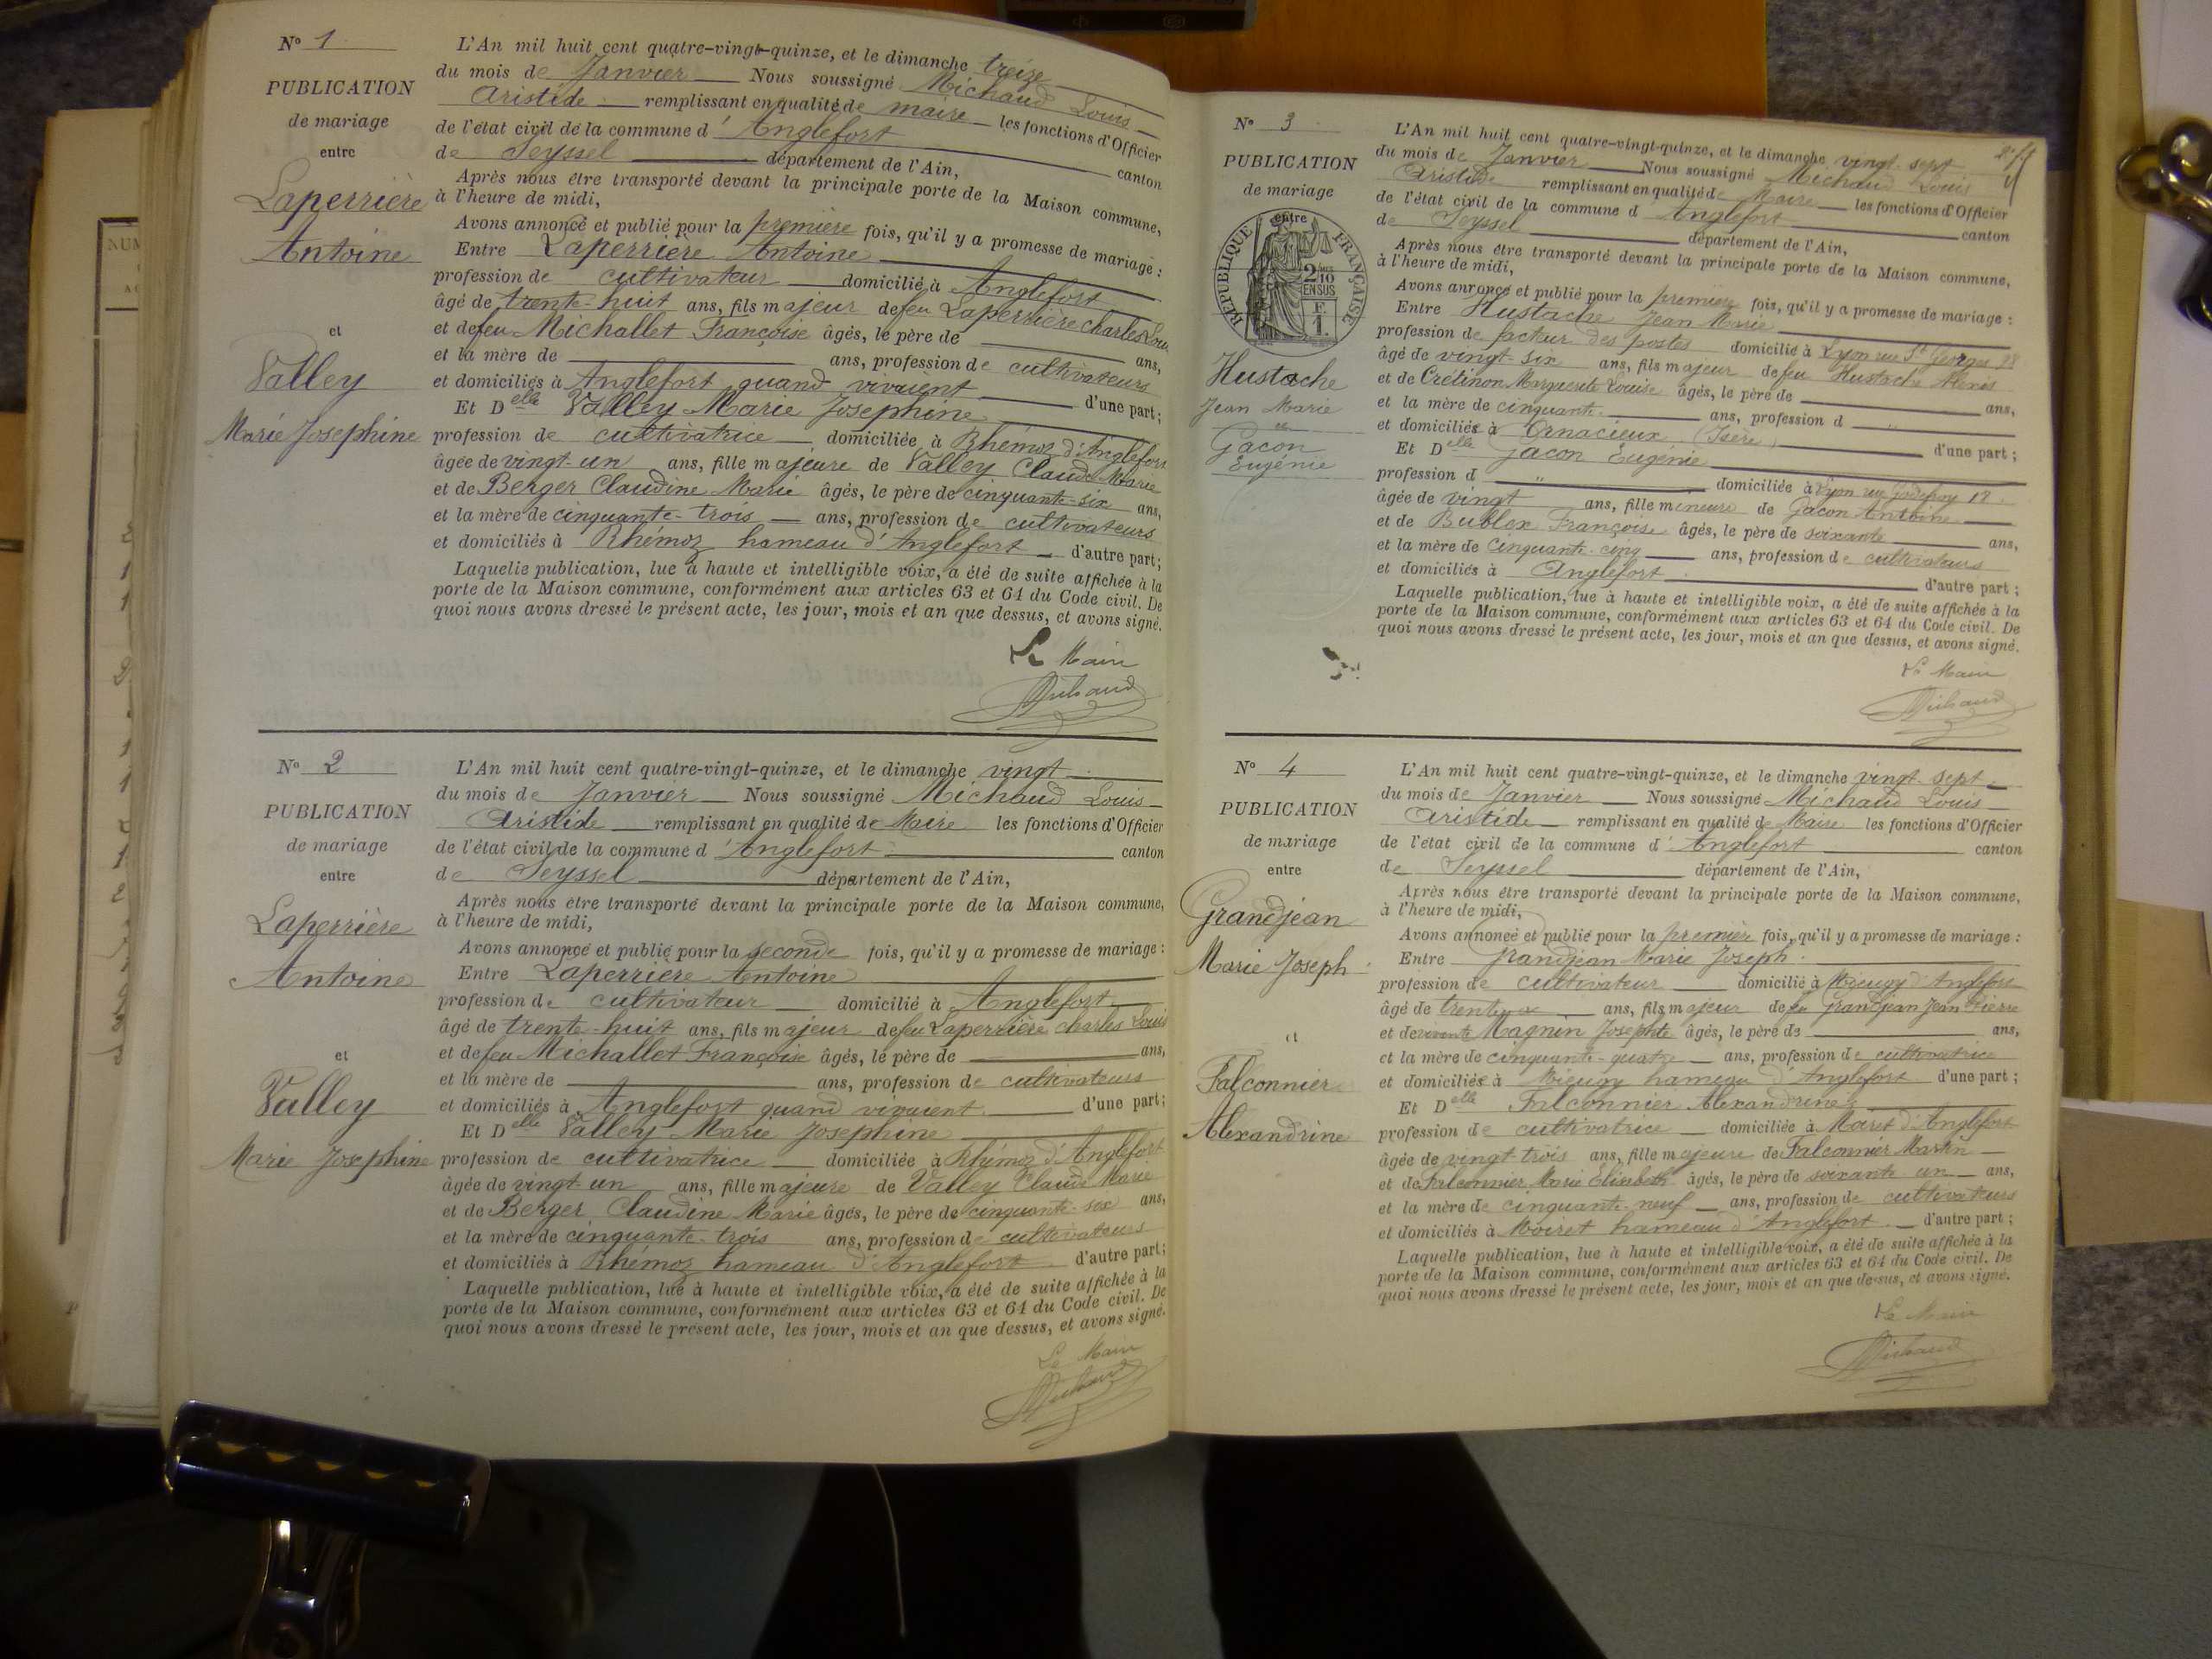 N° 1
PUBLICATION
de mariage
entre
Laperrière
Antoine
et
Valley
Marie Josephine
L'An mil huit cent quatre-vingt-quinze, et le dimanche treize
du mois de Janvier Nous soussigné Michaud Louis
Aristide remplissant en qualité de maire les fonctions d'Officier
de l'état civil de la commune d'Anglefort canton
de Seyssel département de l'Ain,
Après nous être transporté devant la principale porte de la Maison commune,
à l'heure de midi,
Avons annoncé et publié pour la première fois, qu'il y a promesse de mariage :
Entre Laperrière Antoine
profession de cultivateur domicilié à Anglefort
âgé de trente-huit ans, fils majeur de feu Laperrière charles Lou
et de feu Michallet Françoise âgés, le père de ans,
et la mère de ans, profession de cultivateurs
et domiciliés à Anglefort quand vivaient d'une part ;
Et Delle Valley Marie Josephine
profession de cultivatrice domiciliée à Rhémoz d'Anglefort
âgée de vingt-un ans, fille majeure de Valley Claude Marie
et de Berger Claudine Marie âgés, le père de cinquante-six ans,
et la mère de cinquante-trois ans, profession de cultivateurs
et domiciliés à Rhémoz hameau d'Anglefort d'autre part ;
Laquelle publication, lue à haute et intelligible voix, a été de suite affichée à la
porte de la Maison commune, conformément aux articles 63 et 64 du Code civil. De
quoi nous avons dressé le présent acte, les jour, mois et an que dessus, et avons signé.
Le Maire
Michaud
N° 2
PUBLICATION
de mariage
entre
Laperrière
Antoine
et
Valley
Marie Josephine
L'An mil huit cent quatre-vingt-quinze, et le dimanche vingt
du mois de Janvier Nous soussigné Michaud Louis
Aristide remplissant en qualité de Maire les fonctions d'Officier
de l'état civil de la commune d'Anglefort canton
de Seyssel département de l'Ain,
Après nous être transporté devant la principale porte de la Maison commune,
à l'heure de midi,
Avons annoncé et publié pour la seconde fois, qu'il y a promesse de mariage :
Entre Laperrière Antoine
profession de cultivateur domicilié à Anglefort
âgé de trente-huit ans, fils majeur de feu Laperrière charles Louis
et de feu Michallet Françoise âgés, le père de ans,
et la mère de ans, profession de cultivateurs
et domiciliés à Anglefort quand vivaient d'une part ;
Et Delle Valley Marie Josephine
profession de cultivatrice domiciliée à Rhémoz d'Anglefort
âgée de vingt-un ans, fille majeure de Valley Claude Marie
et de Berger Claudine Marie âgés, le père de cinquante-six ans,
et la mère de cinquante-trois ans, profession de cultivateurs
et domiciliés à Rhémoz hameau d'Anglefort d'autre part ;
Laquelle publication, lue à haute et intelligible voix, a été de suite affichée à la
porte de la Maison commune, conformément aux articles 63 et 64 du Code civil. De
quoi nous avons dressé le présent acte, les jour, mois et an que dessus, et avons signé.
Le Maire
Michaud
N° 3
PUBLICATION
de mariage
entre
RÉPUBLIQUE FRANÇAISE
2/10
EN SUS
F.
1.
Hustache
Jean Marie
et
Gacon
Eugénie
L'An mil huit cent quatre-vingt-quinze, et le dimanche vingt-sept
du mois de Janvier Nous soussigné Michaud Louis
Aristide remplissant en qualité de Maire les fonctions d'Officier
de l'état civil de la commune d'Anglefort canton
de Seyssel département de l'Ain,
Après nous être transporté devant la principale porte de la Maison commune,
à l'heure de midi,
Avons annoncé et publié pour la première fois, qu'il y a promesse de mariage :
Entre Hustache Jean Marie
profession de facteur des postes domicilié à Lyon rue St Georges 98
âgé de vingt-six ans, fils majeur de feu Hustache Alexis
et de Crétinon Marguerite Louise âgés, le père de ans,
et la mère de cinquante ans, profession d "
et domiciliés à Ornacieux (Isère) d'une part ;
Et Delle Gacon Eugénie
profession d " domiciliée à Lyon rue Godefroy 18
âgée de vingt ans, fille mineure de Gacon Antoine
et de Bublex Françoise âgés, le père de soixante ans,
et la mère de cinquante-cinq ans, profession de cultivateurs
et domiciliés à Anglefort d'autre part ;
Laquelle publication, lue à haute et intelligible voix, a été de suite affichée à la
porte de la Maison commune, conformément aux articles 63 et 64 du Code civil. De
quoi nous avons dressé le présent acte, les jour, mois et an que dessus, et avons signé.
Le Maire
Michaud
N° 4
PUBLICATION
de mariage
entre
Grandjean
Marie Joseph
et
Falconnier
Alexandrine
L'An mil huit cent quatre-vingt-quinze, et le dimanche vingt-sept
du mois de Janvier Nous soussigné Michaud Louis
Aristide remplissant en qualité de Maire les fonctions d'Officier
de l'état civil de la commune d'Anglefort canton
de Seyssel département de l'Ain,
Après nous être transporté devant la principale porte de la Maison commune,
à l'heure de midi,
Avons annoncé et publié pour la première fois, qu'il y a promesse de mariage :
Entre Grandjean Marie Joseph
profession de cultivateur domicilié à Mieugy d'Anglefort
âgé de trente ans, fils majeur de feu Grandjean Jean Pierre
et de vivante Magnin Josephte âgés, le père de ans,
et la mère de cinquante-quatre ans, profession de cultivatrice
et domiciliés à Mieugy hameau d'Anglefort d'une part ;
Et Delle Falconnier Alexandrine
profession de cultivatrice domiciliée à Moiret d'Anglefort
âgée de vingt-trois ans, fille majeure de Falconnier Martin
et de Falconnier Marie Elisabeth âgés, le père de soixante un ans,
et la mère de cinquante-neuf ans, profession de cultivateurs
et domiciliés à Moiret hameau d'Anglefort d'autre part ;
Laquelle publication, lue à haute et intelligible voix, a été de suite affichée à la
porte de la Maison commune, conformément aux articles 63 et 64 du Code civil. De
quoi nous avons dressé le présent acte, les jour, mois et an que dessus, et avons signé.
Le Maire
Michaud